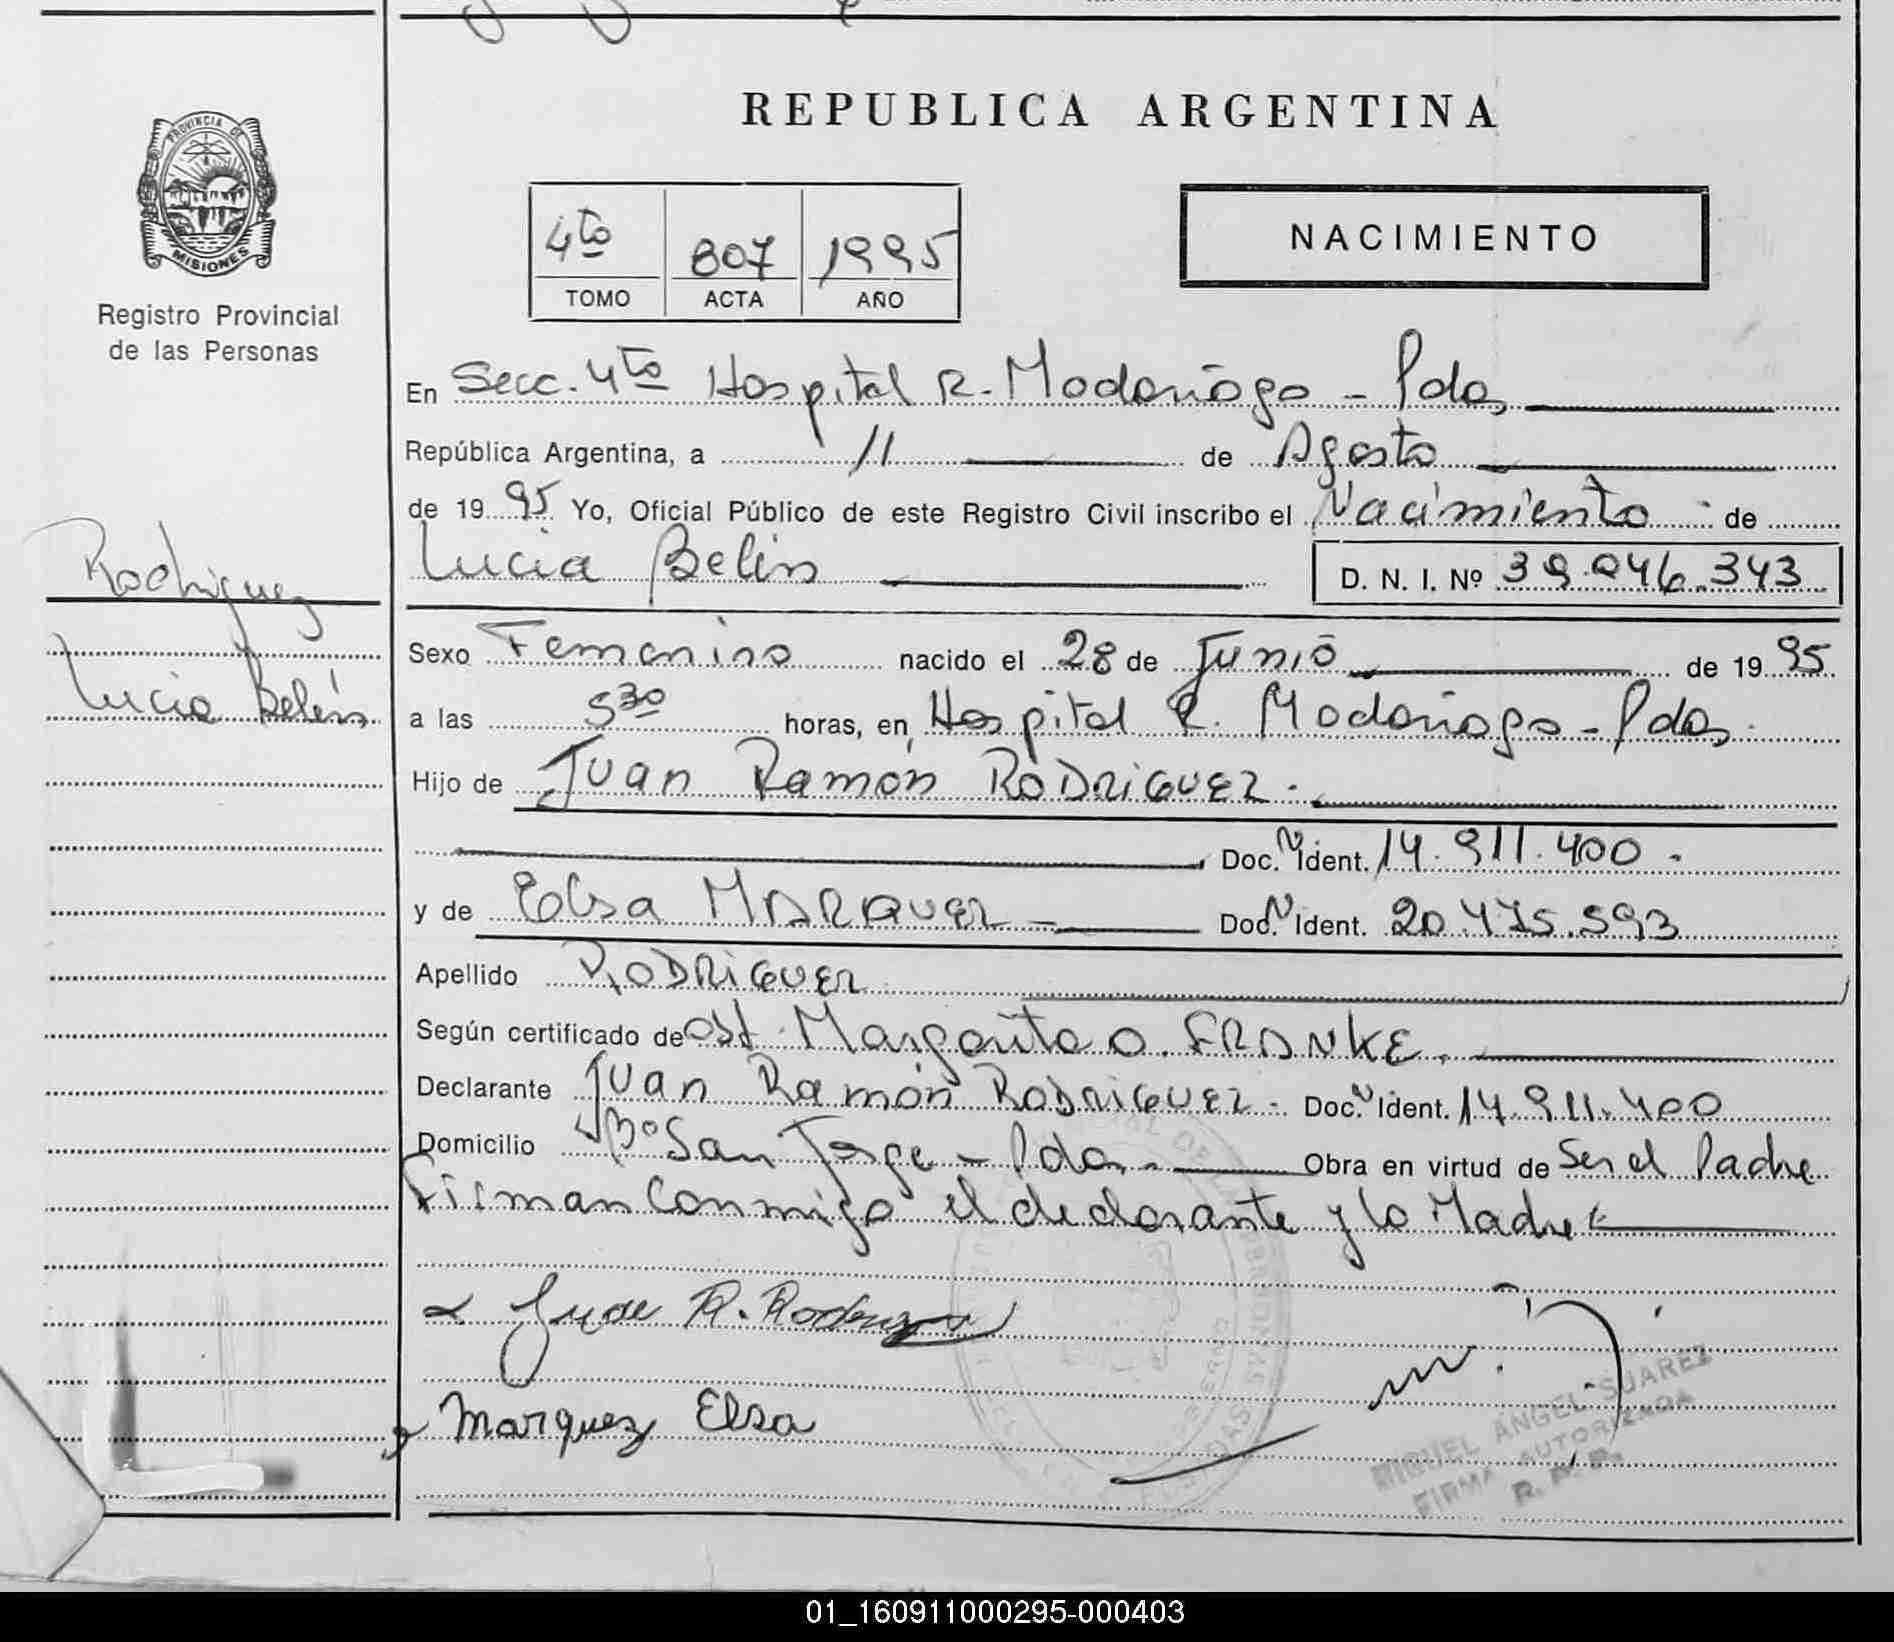 REPUBLICA ARGENTINA
PROVINCIA DE
MISIONES
Registro Provincial
de las Personas
4to 807 1995
TOMO ACTA AÑO
NACIMIENTO
En Secc. 4to Hospital R. Madariaga - Pdas
República Argentina, a 11 de Agosto
de 19 95 Yo, Oficial Público de este Registro Civil inscribo el Nacimiento de
Lucia Belén D. N. I. Nº 39.046.343
Rodriguez
Lucia Belén
Sexo Femenino nacido el 28 de Junio de 19 95
a las 5 30 horas, en Hospital R. Madariaga - Pdas.
Hijo de Juan Ramón RODRIGUEZ.
Doc. N Ident. 14.911.400.
y de Elsa MARQUEZ Doc. N Ident. 20.475.593
Apellido RODRIGUEZ
Según certificado de Obst. Margarita O. FRANKE.
Declarante Juan Ramón RODRIGUEZ. Doc. N Ident. 14.911.400
Domicilio Bº San Jorge - Pdas. Obra en virtud de Ser el Padre
Firman Conmigo el declarante y la Madre
Juan R. Rodriguez
Marquez Elsa
MIGUEL ANGEL SUAREZ
FIRMA AUTORIZADA
R. P. P.
01_160911000295-000403